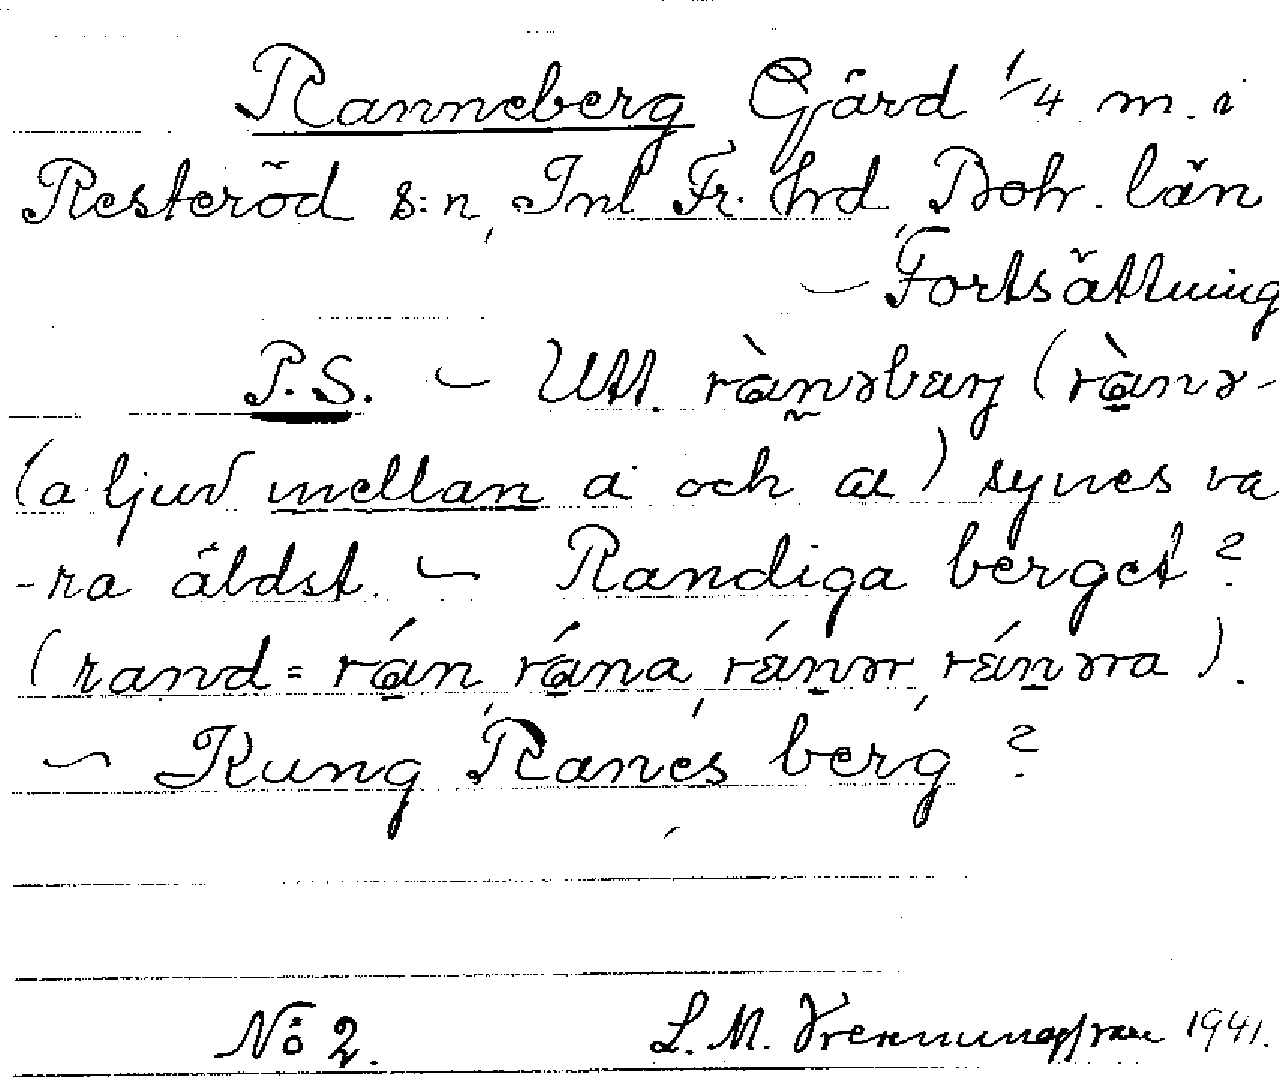 Ranneberg Gård 1/4 m. i
Resteröd s:n, Inl Fr. hrd, Boh. län
– Fortsättning
P.S. – Utt. rànəbærj (rànə-
(a-ljud mellan a och æ) synes va
-ra äldst. – Randiga berget?
(rand = rán, rána, rǽnər, rǽnərra).
– Kung Ranes berg?
No 2. L. M. 1941.